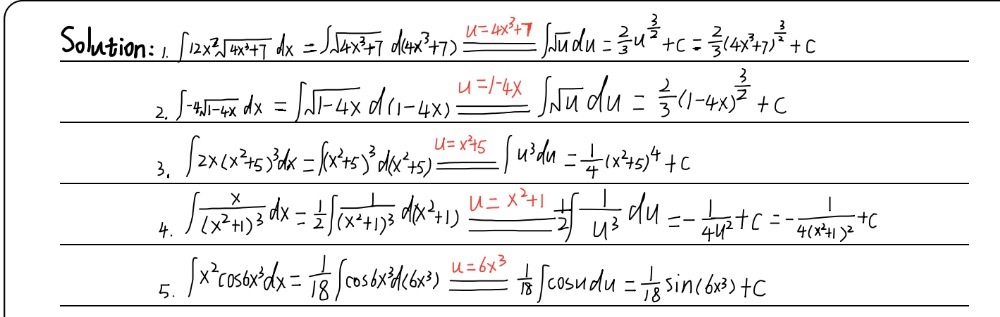 Solution: 1. ∫12x²√(4x³+7) dx = ∫√(4x³+7) d(4x³+7) u=4x³+7 ∫√u du = 2/3 u^(3/2) + C = 2/3 (4x³+7)^(3/2) + C
2. ∫-4√(1-4x) dx = ∫√(1-4x) d(1-4x) u=1-4x ∫√u du = 2/3 (1-4x)^(3/2) + C
3. ∫2x(x²+5)³dx = ∫(x²+5)³ d(x²+5) u=x²+5 ∫u³du = 1/4 (x²+5)⁴ + C
4. ∫x/(x²+1)³ dx = 1/2 ∫1/(x²+1)³ d(x²+1) u=x²+1 1/2 ∫1/u³ du = -1/(4u²) + C = -1/(4(x²+1)²) + C
5. ∫x²cos6x³dx = 1/18 ∫cos6x³d(6x³) u=6x³ 1/18 ∫cosudu = 1/18 sin(6x³) + C